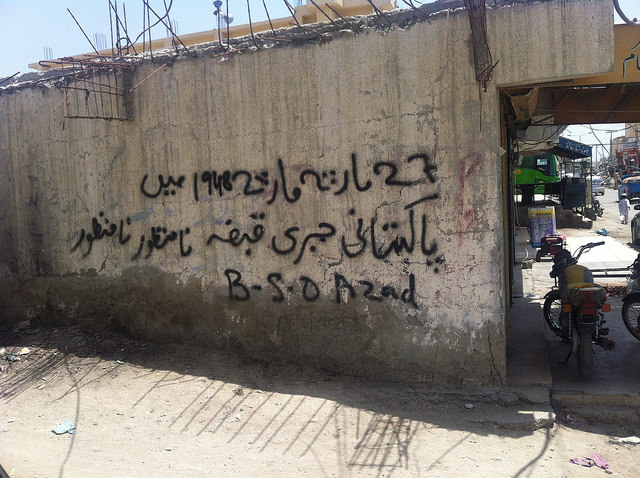 27 مارچ مارچ 1948 میں
پاکستانی جبری قبضہ نامنظور نامنظور
B-S-O Azad